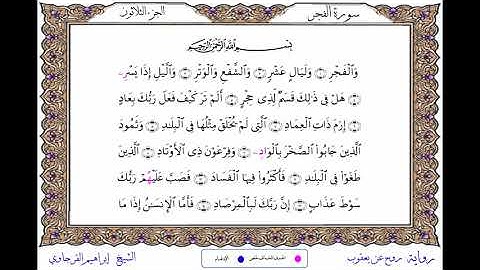 سورة الفجر
الجزء الثلاثون
بِسْمِ ٱللَّهِ ٱلرَّحْمَٰنِ ٱلرَّحِيمِ
وَٱلْفَجْرِ ۝ وَلَيَالٍ عَشْرٍ ۝ وَٱلشَّفْعِ وَٱلْوَتْرِ ۝ وَٱلَّيْلِ إِذَا يَسْرِ
۝ هَلْ فِي ذَٰلِكَ قَسَمٌ لِّذِي حِجْرٍ ۝ أَلَمْ تَرَ كَيْفَ فَعَلَ رَبُّكَ بِعَادٍ
۝ إِرَمَ ذَاتِ ٱلْعِمَادِ ۝ ٱلَّتِي لَمْ يُخْلَقْ مِثْلُهَا فِي ٱلْبِلَٰدِ ۝ وَثَمُودَ
ٱلَّذِينَ جَابُوا۟ ٱلصَّخْرَ بِٱلْوَادِ ۝ وَفِرْعَوْنَ ذِي ٱلْأَوْتَادِ ۝ ٱلَّذِينَ
طَغَوْا۟ فِي ٱلْبِلَٰدِ ۝ فَأَكْثَرُوا۟ فِيهَا ٱلْفَسَادَ ۝ فَصَبَّ عَلَيْهُمْ رَبُّكَ
سَوْطَ عَذَابٍ ۝ إِنَّ رَبَّكَ لَبِٱلْمِرْصَادِ ۝ فَأَمَّا ٱلْإِنسَٰنُ إِذَا مَا
رواية روح عن يعقوب
الشيخ إبراهيم الفرجاوي